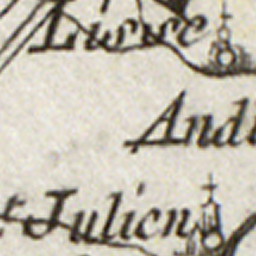 Lissse
Andl
t Julien